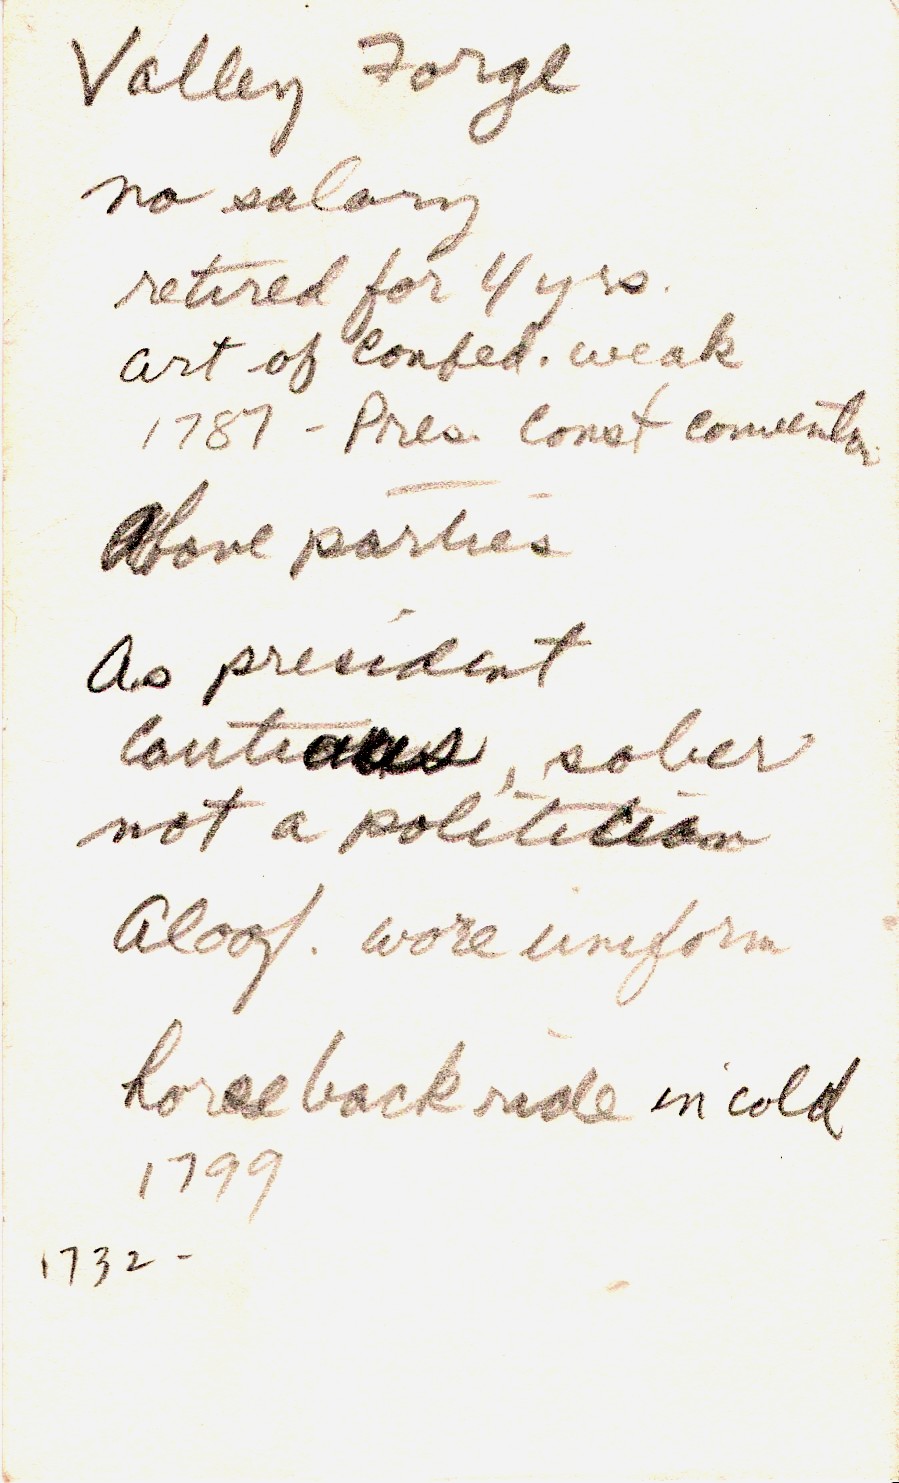 Valley Forge
no salary
retired for 4 yrs.
Art of Confed. weak
1787 - Pres. Const Convention
Above parties
As president
Cautious, sober
not a politician
Aloof. wore uniform
horseback ride in cold
1799
1732 -